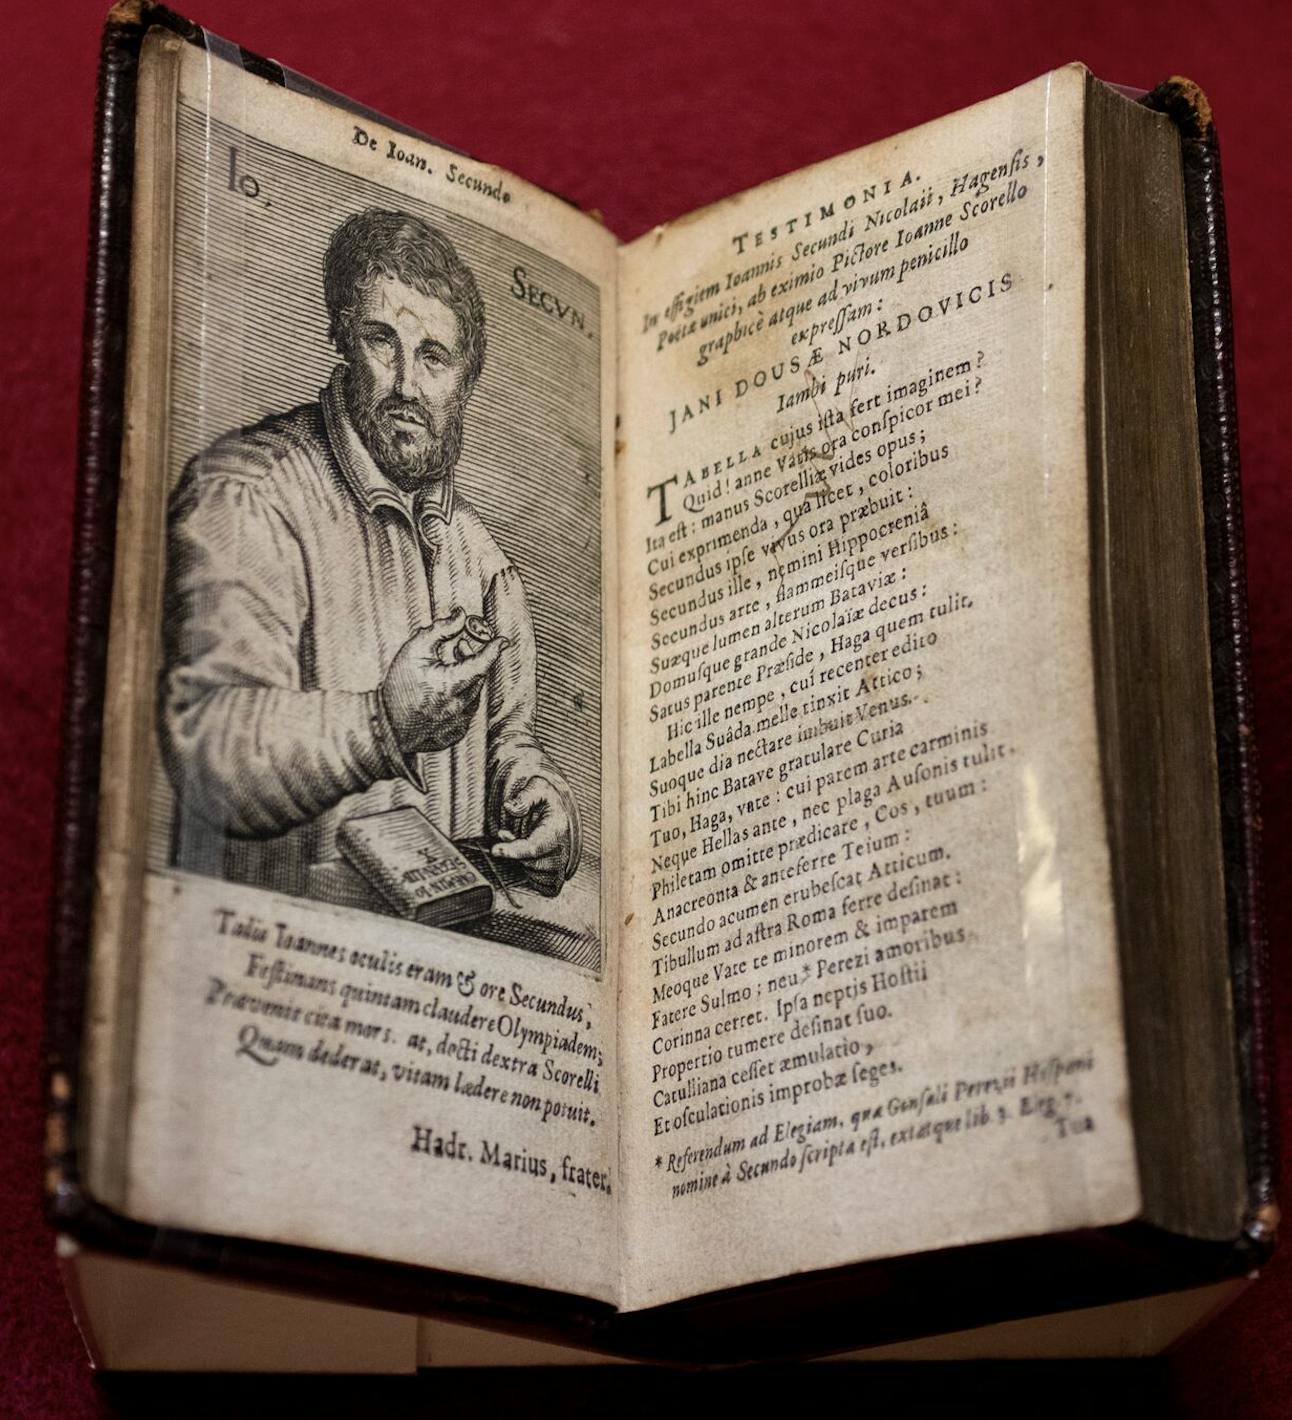 De Ioan. Secundo
Io.
SECVN.
Talis Ioannes oculis eram & ore Secundus,
Festinans quintam claudere Olympiadem;
Prævenit cita mors. at, docti dextra Scorelli
Quam dederat, vitam lædere non potuit.
Hadr. Marius, frater.
TESTIMONIA.
In effigiem Ioannis Secundi Nicolaii, Hagensis,
Poëtæ unici, ab eximio Pictore Ioanne Scorello
graphicè atque ad vivum penicillo
expressam:
JANI DOUSÆ NORDOVICIS
Iambi puri.
TABELLA cujus ista fert imaginem?
Quid! anne Vatis ora conspicor mei?
Ita est: manus Scorelliæ vides opus;
Cui exprimenda, qua licet, coloribus
Secundus ipse vivus ora præbuit:
Secundus ille, nemini Hippocreniâ
Secundus arte, flammeisque versibus:
Suæque lumen alterum Bataviæ:
Domusque grande Nicolaïæ decus:
Satus parente Præside, Haga quem tulit.
Hic ille nempe, cui recenter edito
Labella Suâda melle tinxit Attico;
Suoque dia nectare imbuit Venus.
Tibi hinc Batave gratulare Curia
Tuo, Haga, vate: cui parem arte carminis
Neque Hellas ante, nec plaga Ausonis tulit.
Philetam omitte prædicare, Cos, tuum:
Anacreonta & anteferre Teium:
Secundo acumen erubescat Atticum.
Tibullum ad astra Roma ferre desinat:
Meoque Vate te minorem & imparem
Fatere Sulmo; neu * Perezi amoribus
Corinna certet. Ipsa neptis Hostii
Propertio tumere desinat suo.
Catulliana cesset æmulatio,
Et osculationis improbæ seges.
* Referendum ad Elegiam, quæ Gonsali Perezii Hispani
nomine à Secundo scripta est, extatque lib. 3. Eleg. 7.
Tua